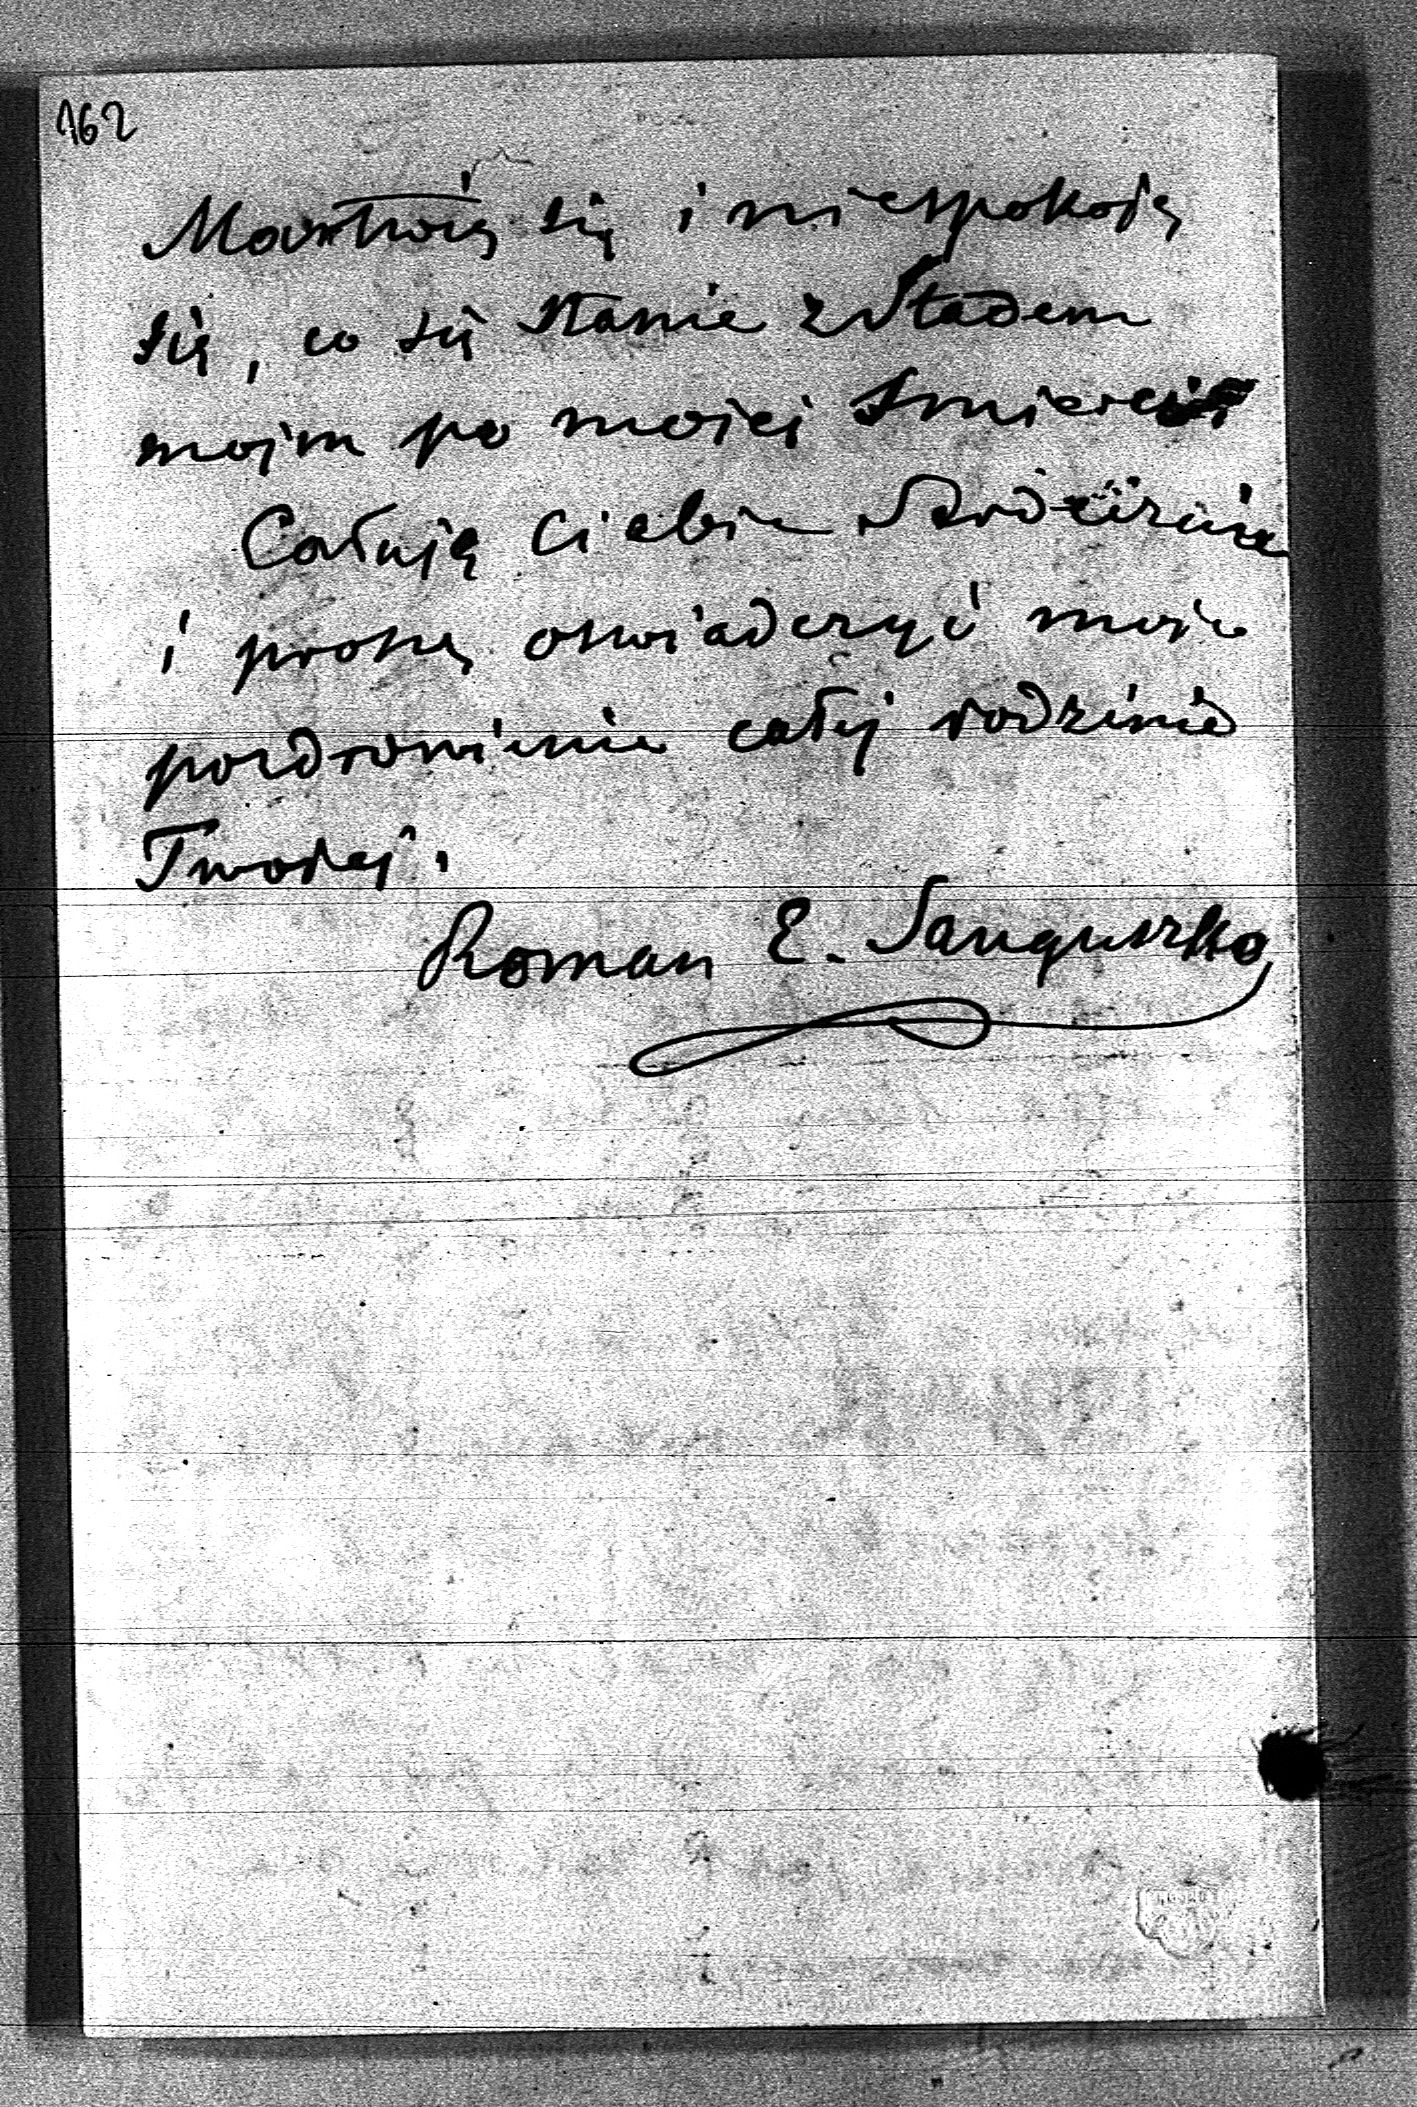 162
Martwię się i niespokoję
się, co się stanie z Stadem
mojm po mojej Smierci
Całuję Ciebie Serdecznie
i proszę oswiadczyć moje
pozdrowienie całej rodzinie
Twojej.
Roman E. Sanguszko